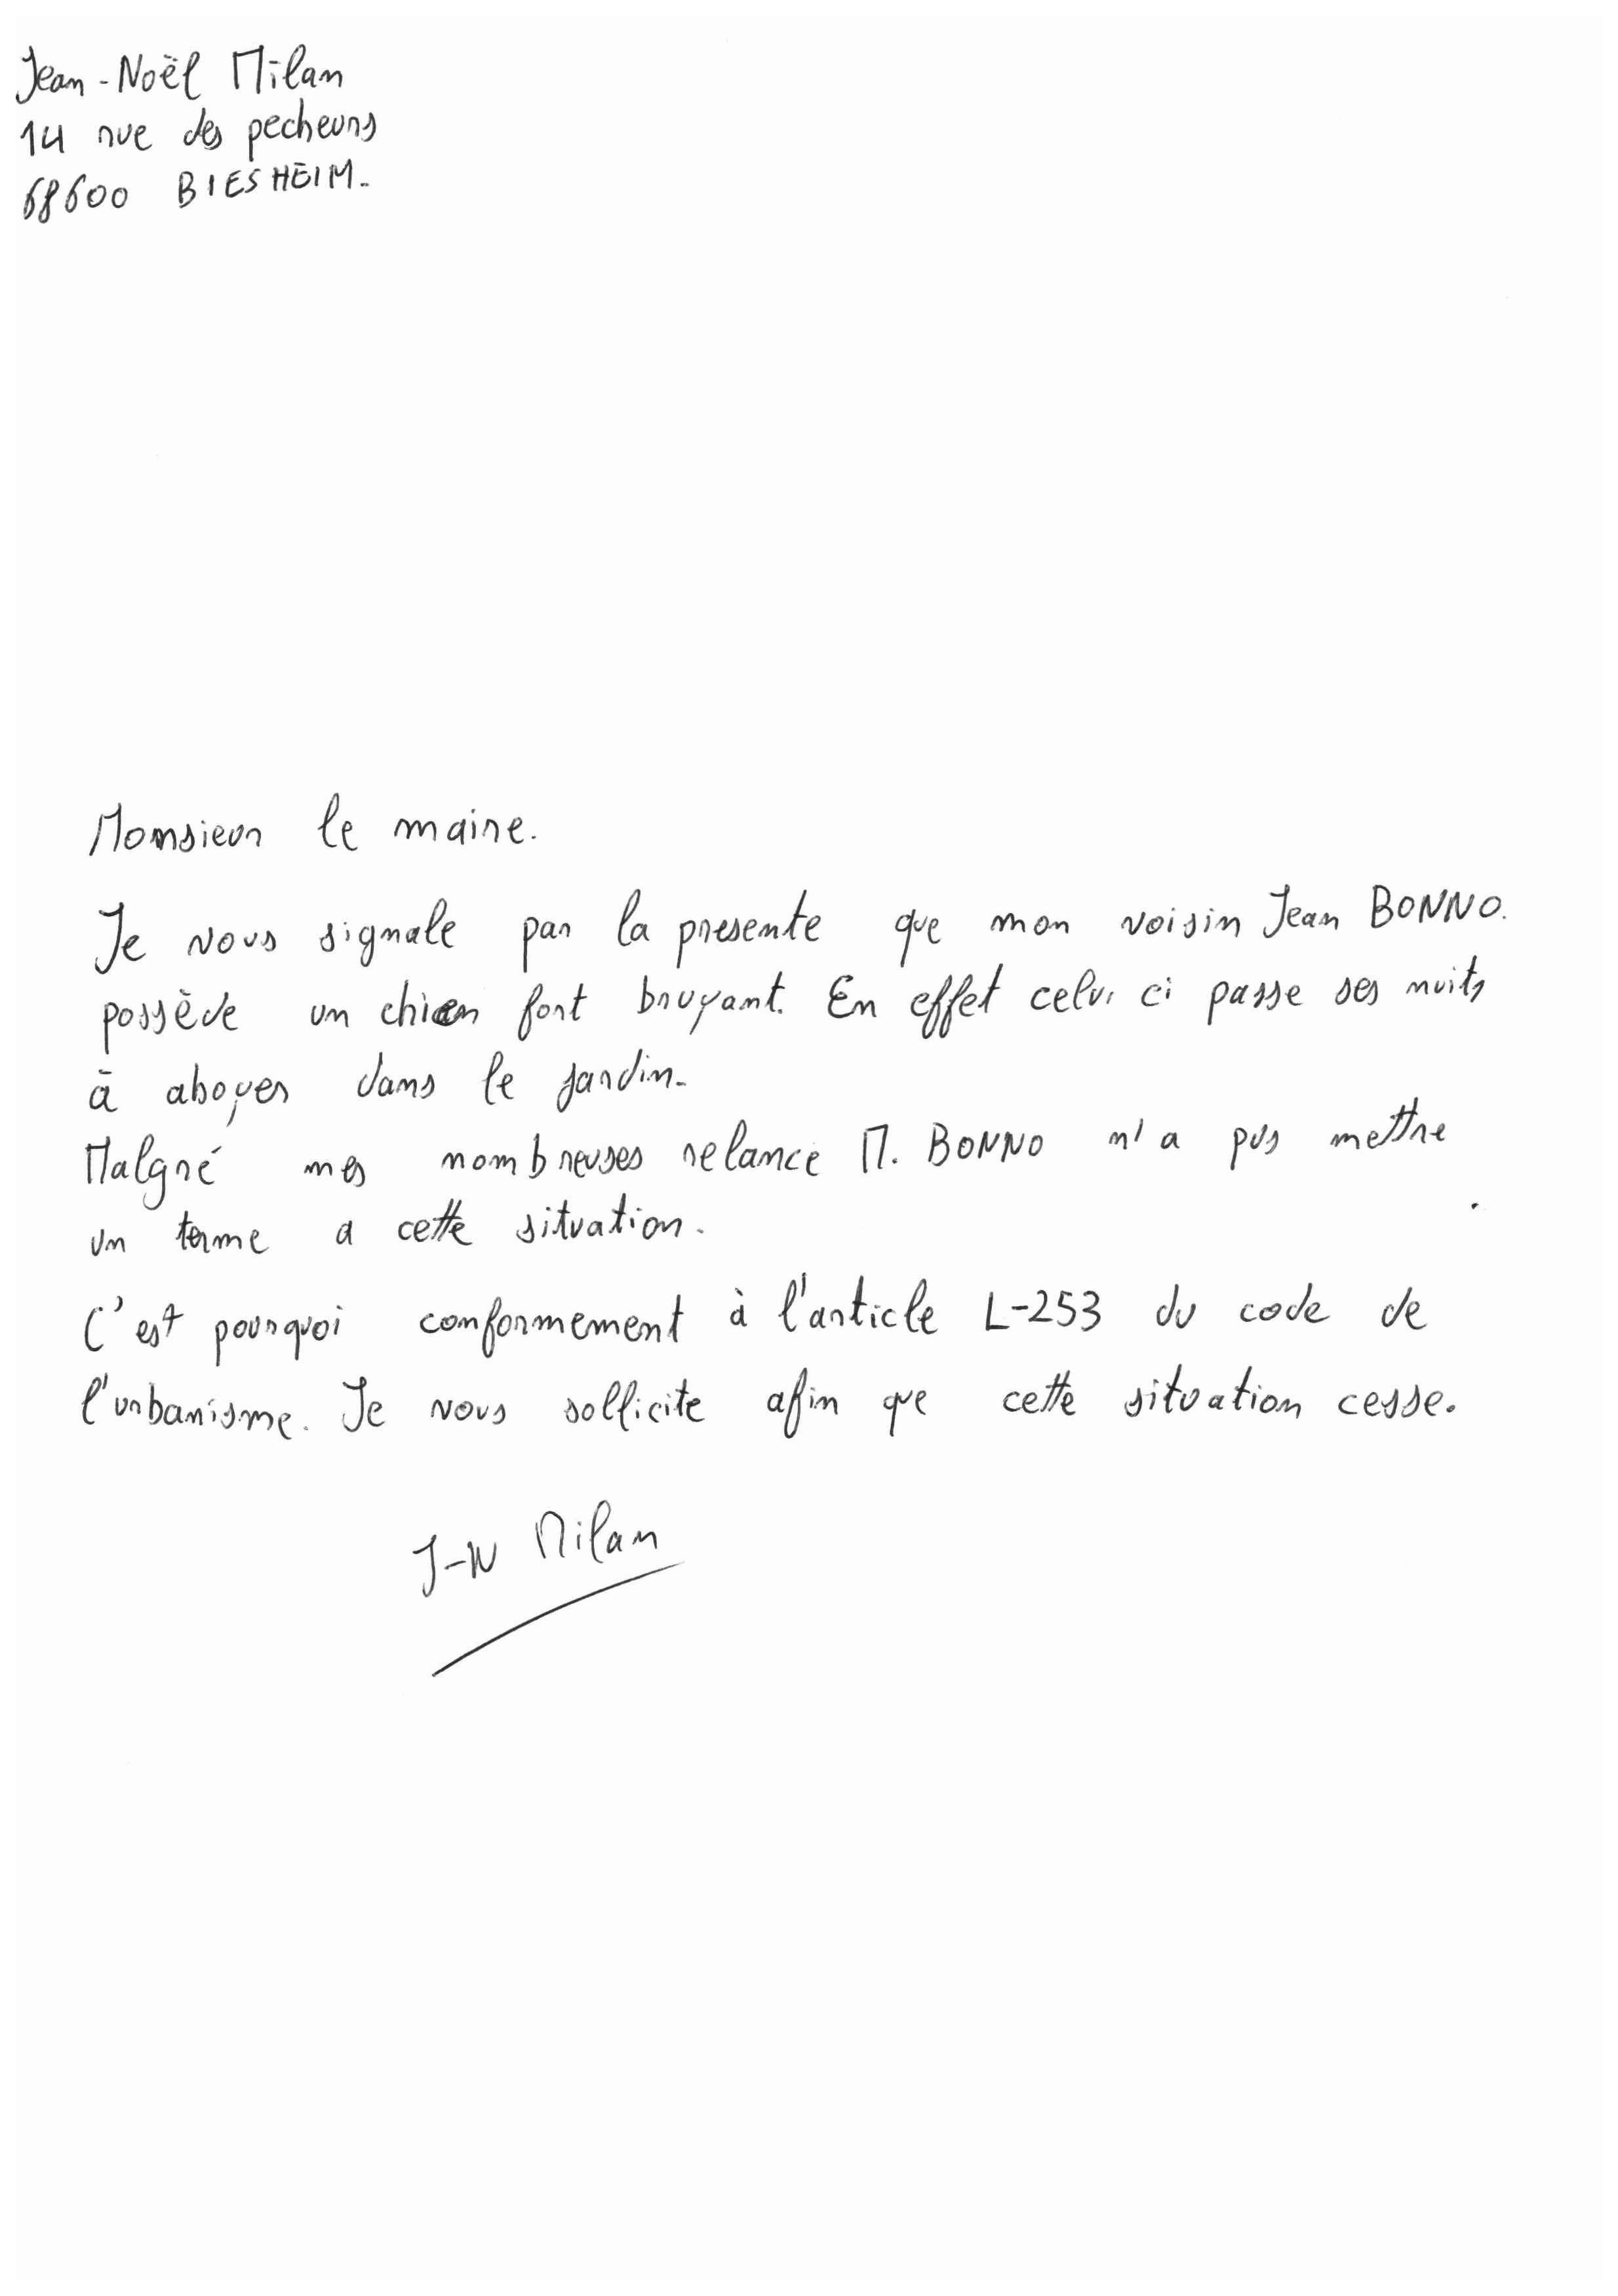 Jean-Noël Milan
14 rue des pecheurs
68600 BIESHEIM.
Monsieur le maire.
Je vous signale par la presente que mon voisin Jean BONNO.
possède un chien fort bruyant. En effet celui ci passe ses nuits
à aboyer dans le jardin.
Malgré mes nombreuses relance M. BONNO n'a pus mettre
un terme a cette situation.
C'est pourquoi conformement à l'article L-253 du code de
l'urbanisme. Je vous sollicite afin que cette situation cesse.
J-N Milan